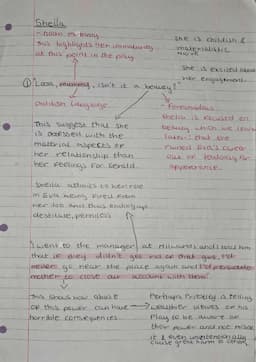 Sheila
- born to being
This highlights her immaturity
at this point in the play
She is childish &
materialistic
She is excited about
her engagement.
① "Look, mummy, isn't it a beauty?"
childish language
Foreshadows
Sheila is focused on
beauty which we learn
later that she
ruined Eva's career
out of jealousy for
appearance.
This suggest that she
is obsessed with the
material aspects of
her relationship than
her feelings for Gerald.
Sheila admits to her role
in Eva being fired from
her job and thus ending up
destitute, penniless
"I went to the manager at Milwards and I told him
that if they didn't get rid of that girl, I'd
never go near the place again and I'd persuade
mother to close our account with them."
This shows how abuse
of this power can have
horrible consequences.
Perhaps Priestley is telling
wealthier
play to be aware of
their power and not make
it & even unintentionally
cause great harm to others